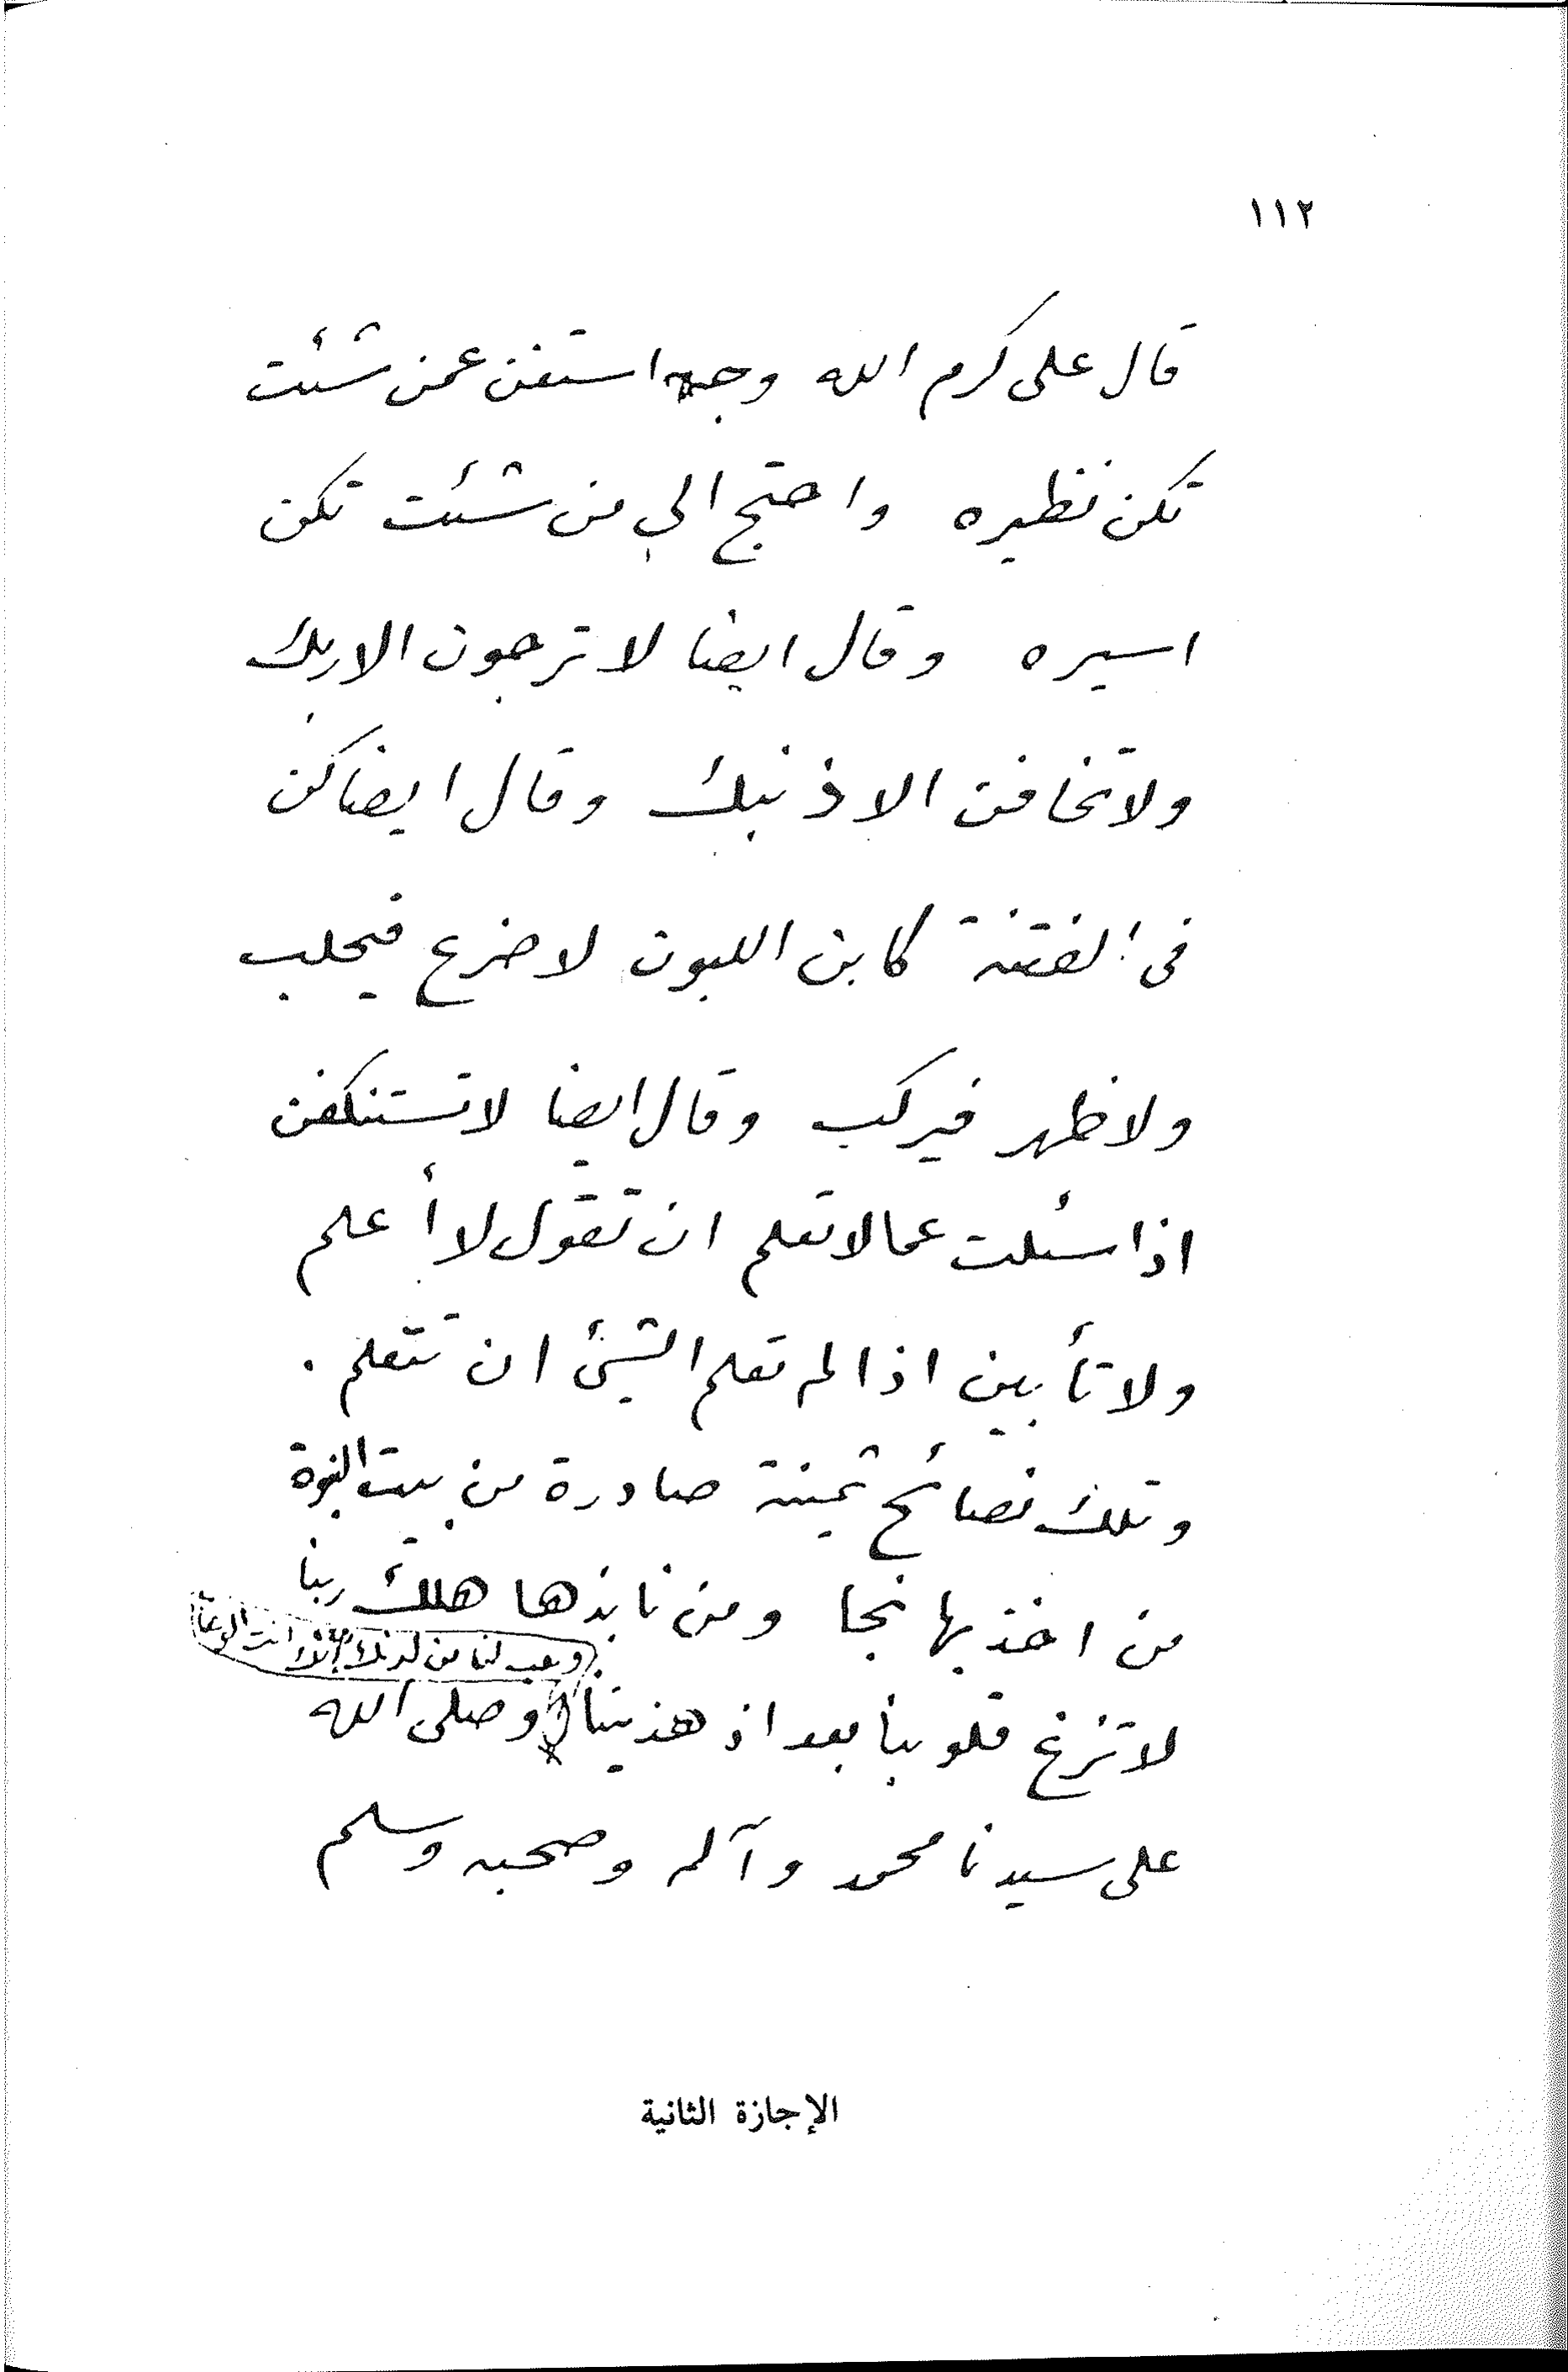 ١١٢
قال على كرم الله وجهه استغن عمن شئت
تكن نظيره واحتج الى من شئت تكن
اسيره وقال ايضا لا ترجون الا ربك
ولا تخافن الا ذنبك وقال ايضا كن
فى الفتنة كابن اللبون لا ضرع فيحلب
ولا ظهر فيركب وقال ايضا لا تستنكفن
اذا سئلت عما لا تعلم ان تقول لا أعلم
ولا تأبين اذا لم تعلم الشيئ ان تتعلم .
وتلك نصائح ثمينة صادرة من بيت النبوة
من اخذ بها نجا ومن نابذها هلك ربنا
وهب لنا من لدنك رحمة انك انت الوهاب
لا تزغ قلوبنا بعد اذ هديتنا وصلى الله
على سيدنا محمد وآله وصحبه وسلم
الإجازة الثانية